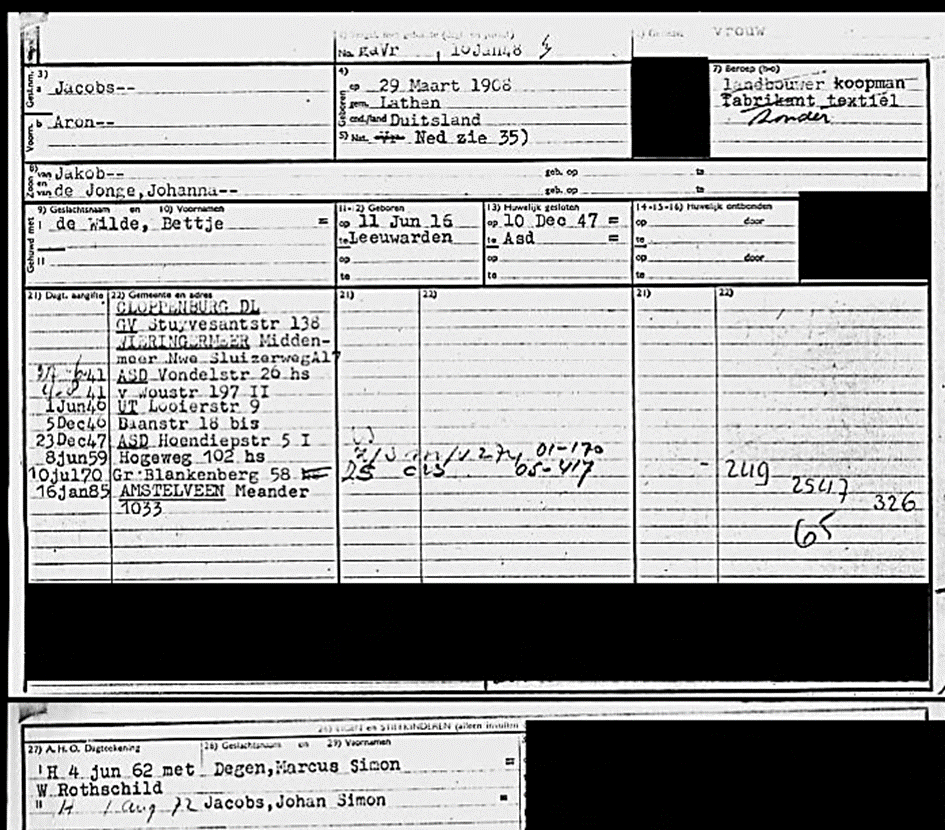 vrouw
No. gaVr , 16Jan48
Gesl.nm. 3) a Jacobs--
Voorn. b Aron--
4) Geboren op 29 Maart 1908
gem. Lathen
Duitsland
5) Nat. Ned zie 35)
7) Beroep (h-o)
landbouwer koopman
fabrikant textiel
Zonder
Zoon 6) van Jakob-- geb. op te
en van de Jonge,Johanna-- geb. op te
Gehuwd met 9) Geslachtsnaam en 10) Voornamen
I de Wilde, Bettje =
II
11-12) Geboren
op 11 Jun 16
te Leeuwarden
op
te
13) Huwelijk gesloten
op 10 Dec 47 =
te Asd =
op
te
14-15-16) Huwelijk ontbonden
op door
te
op door
te
21) Dagt. aangifte 22) Gemeente en adres 21) 22) 21) 22)
CLOPPENBURG DL
GV Stuyvesantstr 138
WIERINGERMEER Midden-
meer Nwe SluizerwegA17
41 ASD Vondelstr 26 hs
41 v Woustr 197 II
1Jun46 UT Looierstr 9
5Dec46 Baanstr 18 bis
23Dec47 ASD Hoendiepstr 5 I
8jun59 Hogeweg 102 hs 01-170
10jul70 Gr.Blankenberg 58 05-417 - 249
16jan85 AMSTELVEEN Meander 2547
1033 326
65
27) A.H.O. Dagteekening 28) Geslachtsnaam en 29) Voornamen
I H 4 jun 62 met Degen,Marcus Simon =
W Rothschild
II H 1 aug 72 Jacobs,Johan Simon =